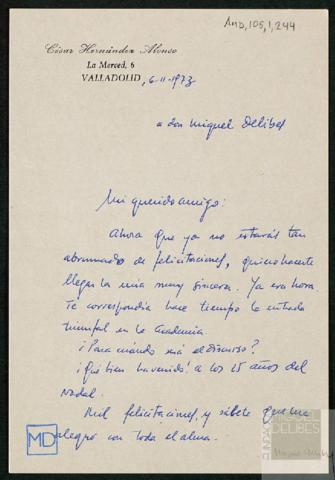 AMD,105,1,244
César Hernández Alonso
La Merced, 6
VALLADOLID, 6-II-1973
a don Miguel Delibes
Mi querido amigo:
Ahora que ya no estarás tan
abrumado de felicitaciones, quiero hacerte
llegar la mía muy sincera. Ya era hora.
Te correspondía hace tiempo la entrada
triunfal en la Academia.
¿Para cuándo será el discurso?
¡Qué bien ha venido! a los 25 años del
Nadal.
Mil felicitaciones, y sábete que me
alegro con toda el alma.
MD
FUNDACIÓN
MIGUEL
DELIBES